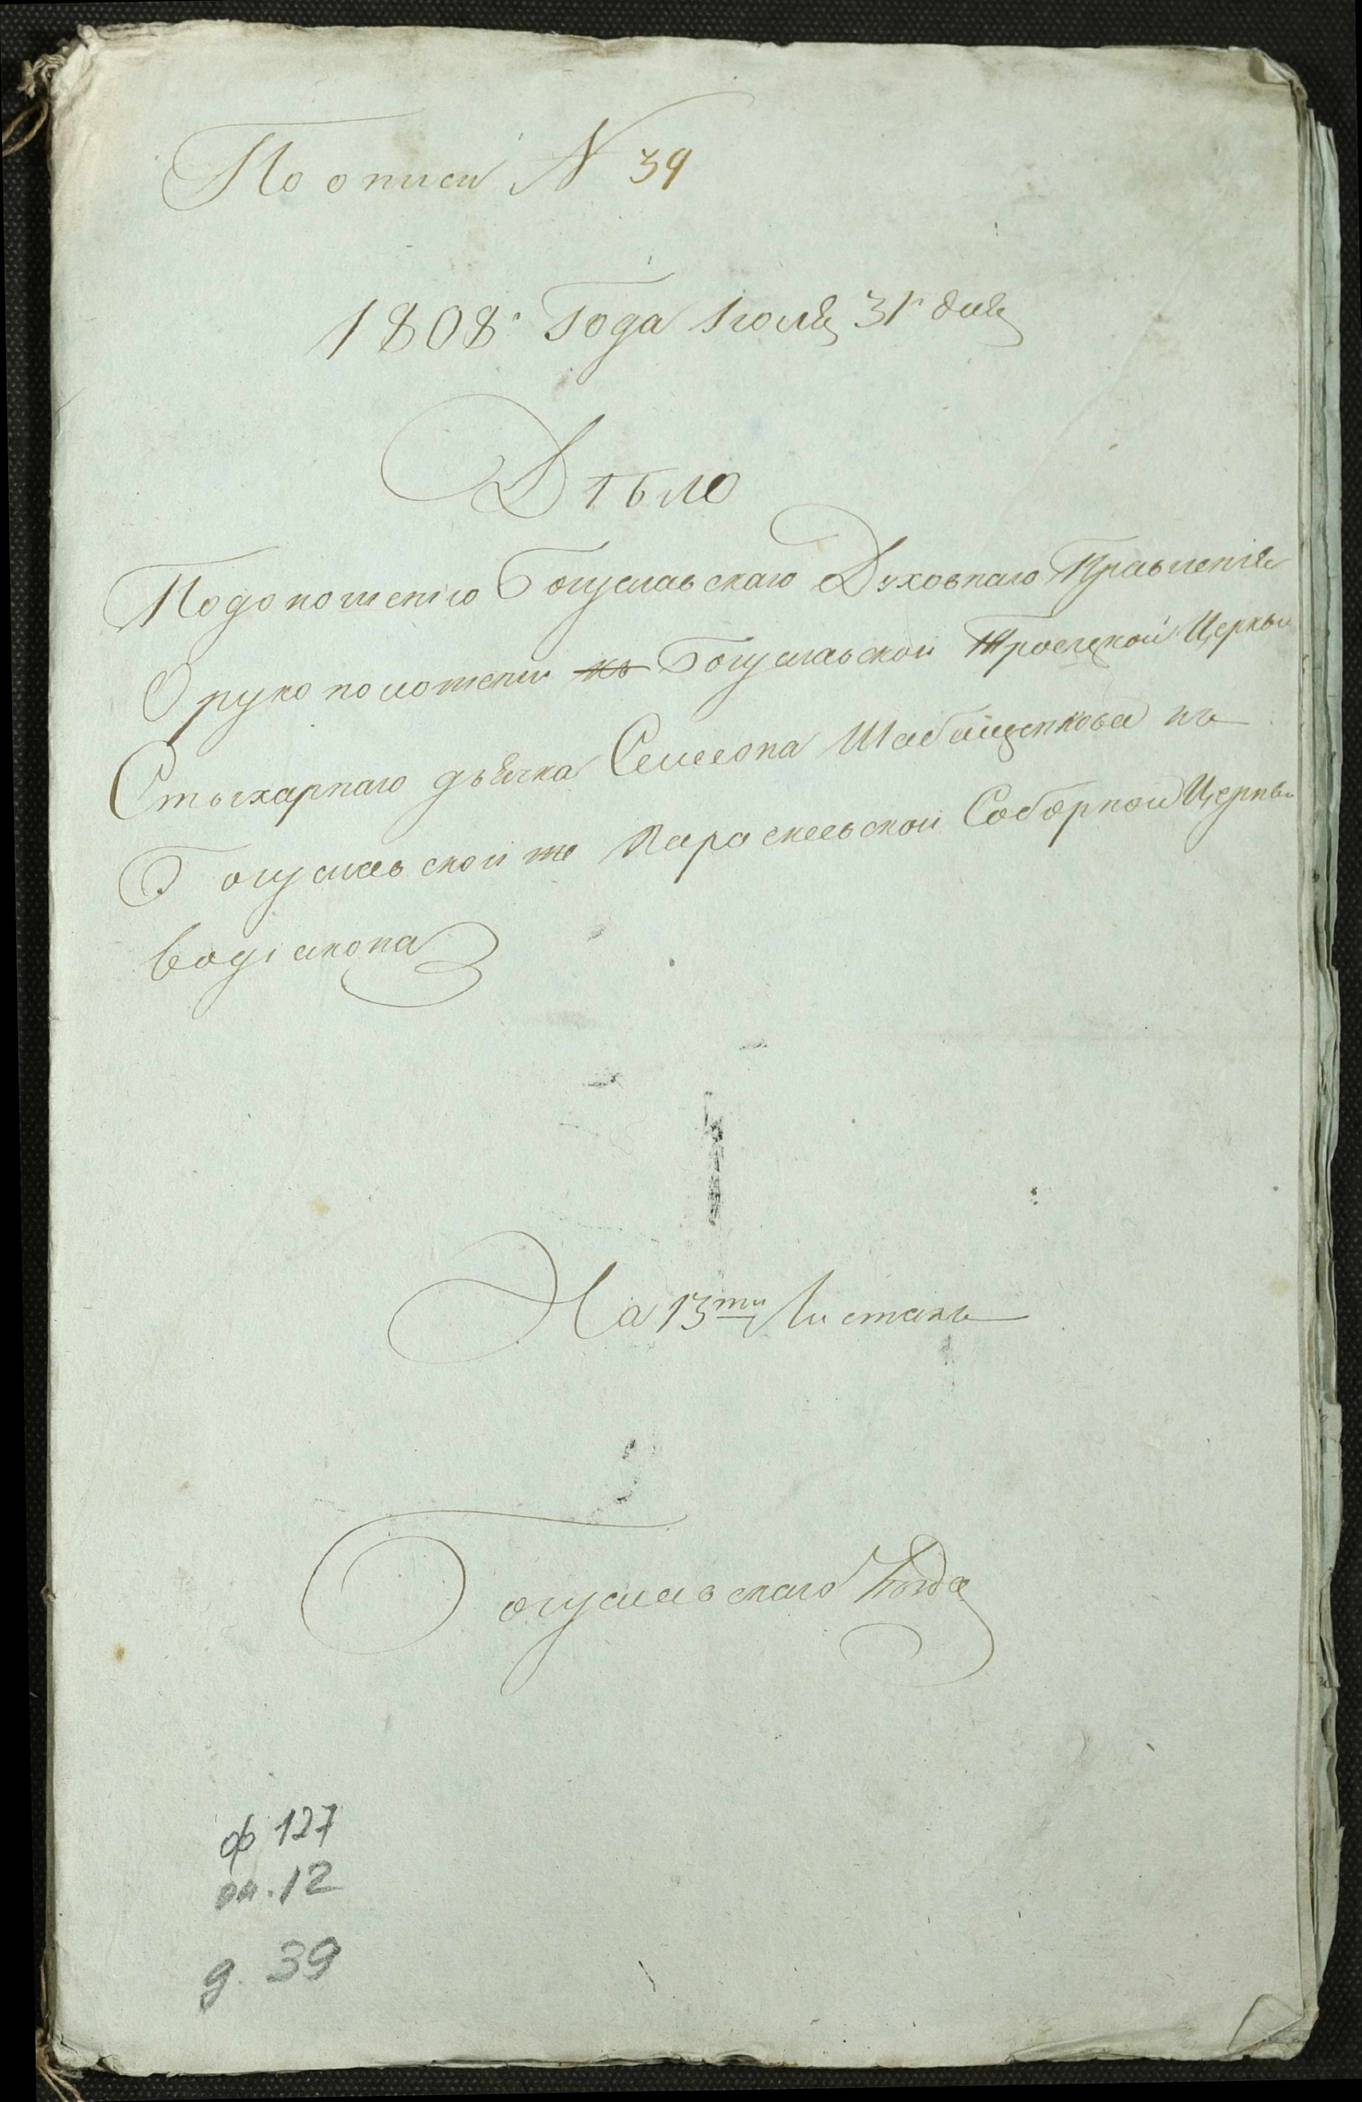 По описи N 39
1808го Года Іюля 31го дня
Дѣло
Подоношению Богуславскаго Духовнаго Правленія
О рукоположении къ Богуславской Троецкой Церкви
Стыхарнаго дьячка Симеона къ
Богуславской же Параскевской Соборной Церкви
водіакона
На 13ти Листахъ
Богуславскаго
ф 127
оп. 12
д. 39